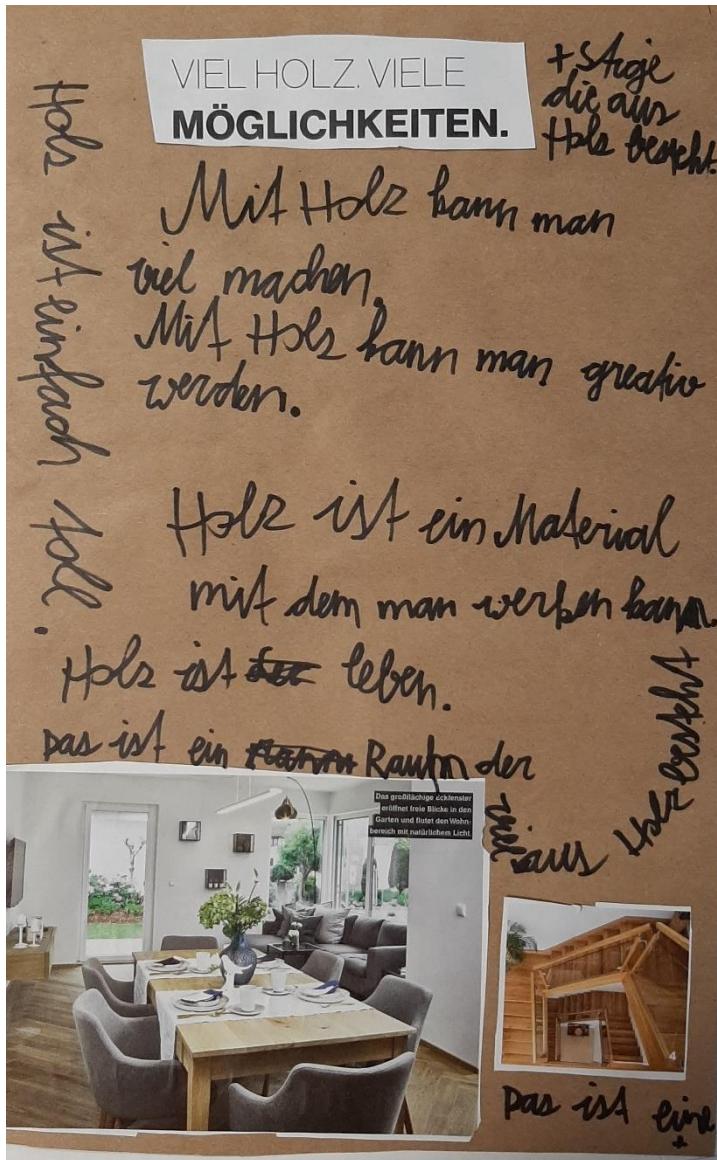 VIEL HOLZ. VIELE
MÖGLICHKEITEN.
+ Stige
die aus
Holz besteht.
Holz ist einfach toll.
Mit Holz kann man
viel machen.
Mit Holz kann man greativ
werden.
Holz ist ein Material
mit dem man werken kann.
Holz ist leben.
Das ist ein Raum der
viel aus Holz besteht
Das großflächige Eckfenster
eröffnet freie Blicke in den
Garten und flutet den Wohn-
bereich mit natürlichem Licht.
4
Das ist eine
+